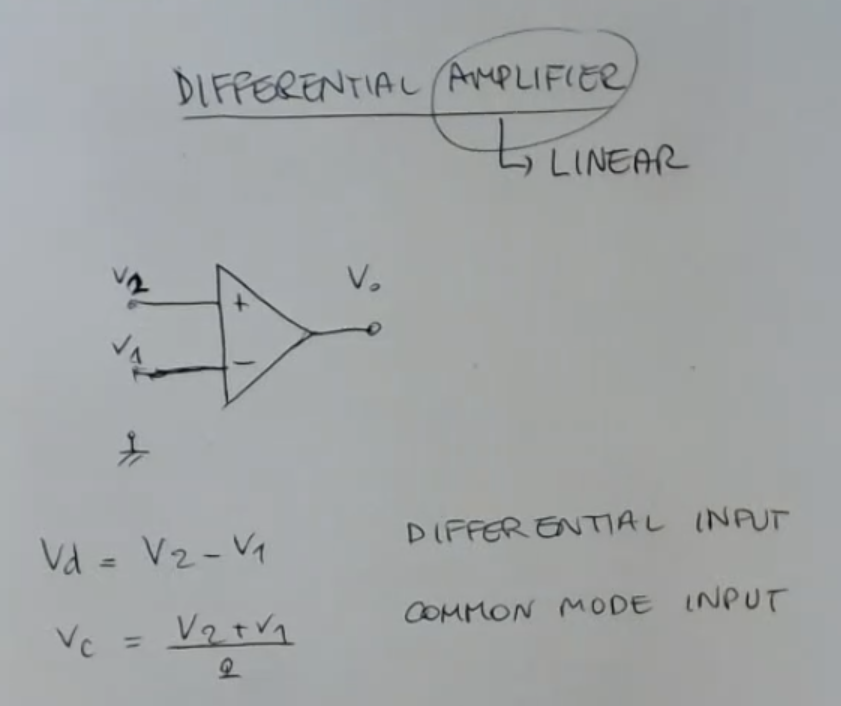 DIFFERENTIAL AMPLIFIER
↳ LINEAR
V2
+
Vo
V1
−
Vd = V2 - V1 DIFFERENTIAL INPUT
Vc = (V2 + V1)/2 COMMON MODE INPUT